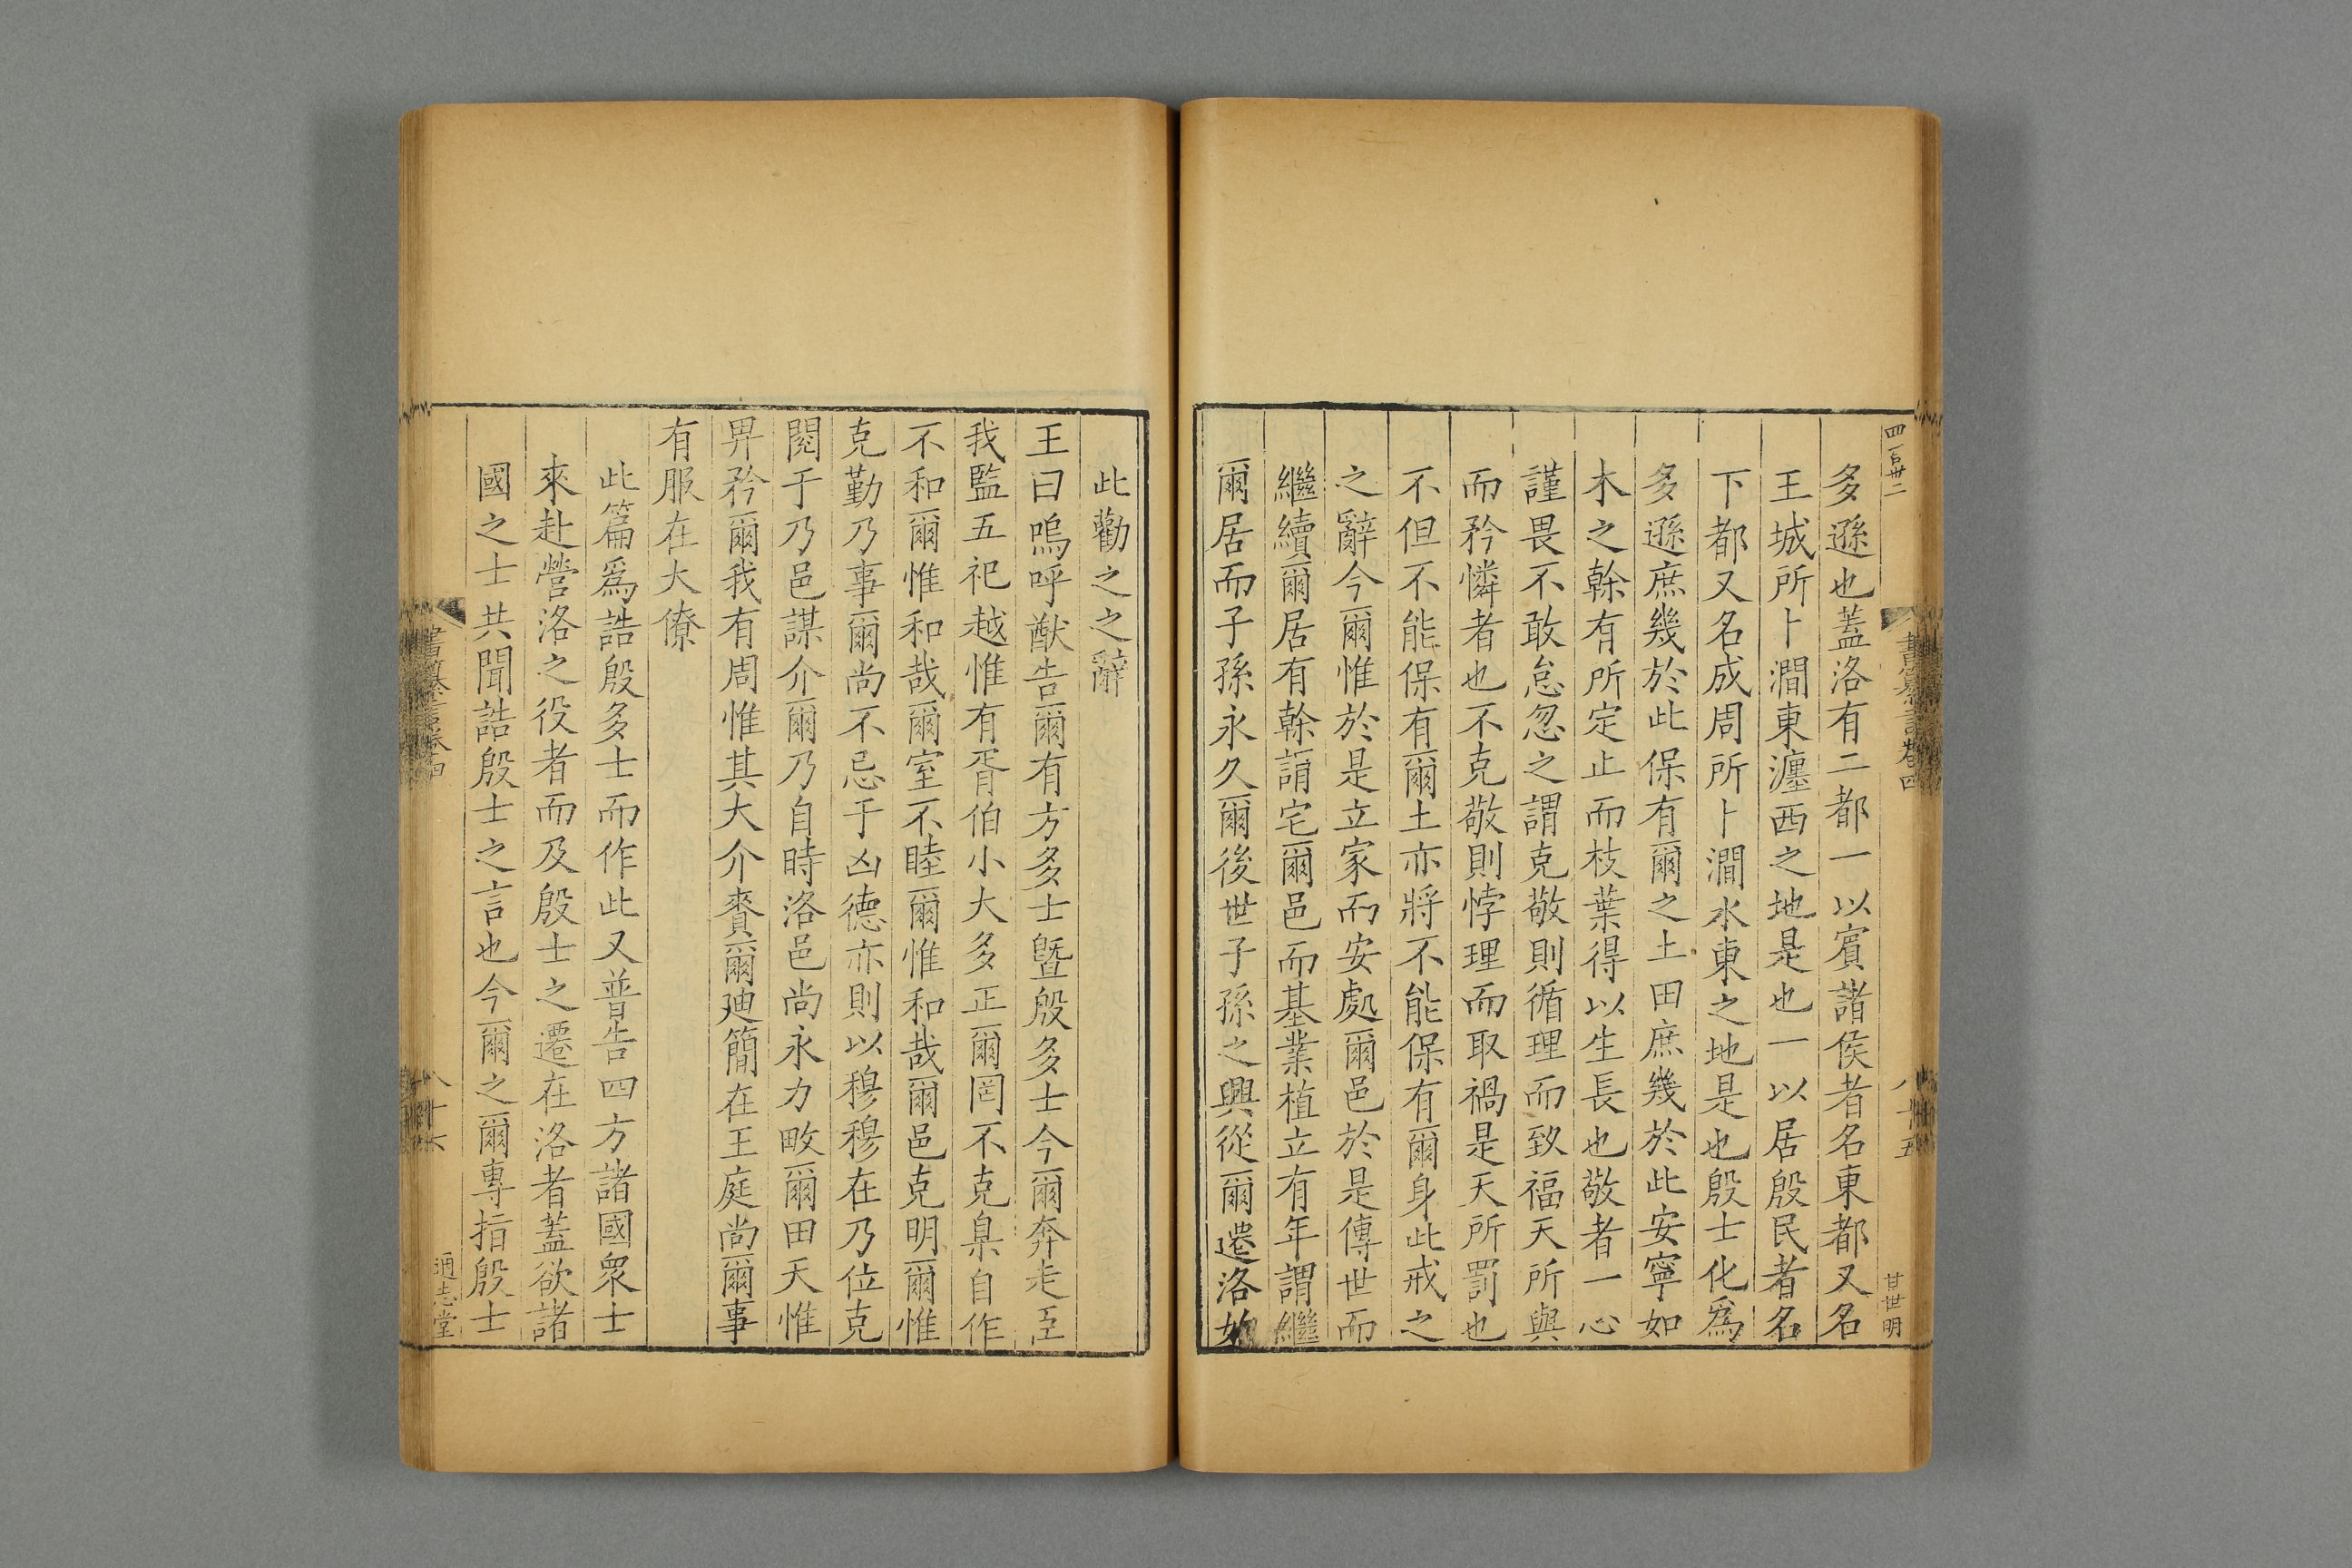 四百卅二
書纂言卷四
八十五
甘世明
多遜也蓋洛有二都一以賓諸侯者名東都又名
王城所卜澗東瀍西之地是也一以居殷民者名
下都又名成周所卜澗水東之地是也殷士化爲
多遜庶幾於此保有爾之土田庶幾於此安寧如
木之榦有所定止而枝葉得以生長也敬者一心
謹畏不敢怠忽之謂克敬則循理而致福天所與
而矜憐者也不克敬則悖理而取禍是天所罰也
不但不能保有爾土亦將不能保有爾身此戒之
之辭今爾惟於是立家而安處爾邑於是傳世而
繼續爾居有榦謂宅爾邑而基業植立有年謂繼
爾居而子孫永久爾後世子孫之興從爾遷洛始
此勸之之辭
王曰嗚呼猷告爾有方多士曁殷多士今爾奔走臣
我監五祀越惟有胥伯小大多正爾罔不克臬自作
不和爾惟和哉爾室不睦爾惟和哉爾邑克明爾惟
克勤乃事爾尚不忌于凶德亦則以穆穆在乃位克
閱于乃邑謀介爾乃自時洛邑尚永力畋爾田天惟
畀矜爾我有周惟其大介賚爾廸簡在王庭尚爾事
有服在大僚
此篇爲誥殷多士而作此又普告四方諸國衆士
來赴營洛之役者而及殷士之遷在洛者蓋欲諸
國之士共聞誥殷士之言也今爾之爾專指殷士
書纂言卷四
八十六
通志堂